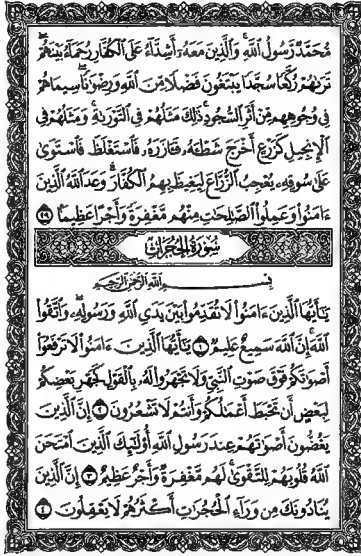 مُّحَمَّدٌ رَّسُولُ اللَّهِ وَالَّذِينَ مَعَهُ أَشِدَّاءُ عَلَى الْكُفَّارِ رُحَمَاءُ بَيْنَهُمْ
تَرَىٰهُمْ رُكَّعًا سُجَّدًا يَبْتَغُونَ فَضْلًا مِّنَ اللَّهِ وَرِضْوَٰنًا سِيمَاهُمْ
فِي وُجُوهِهِم مِّنْ أَثَرِ السُّجُودِ ذَٰلِكَ مَثَلُهُمْ فِي التَّوْرَىٰةِ وَمَثَلُهُمْ فِي
الْإِنجِيلِ كَزَرْعٍ أَخْرَجَ شَطْـَٔهُ فَـَٔازَرَهُ فَاسْتَغْلَظَ فَاسْتَوَىٰ
عَلَىٰ سُوقِهِ يُعْجِبُ الزُّرَّاعَ لِيَغِيظَ بِهِمُ الْكُفَّارَ وَعَدَ اللَّهُ الَّذِينَ
ءَامَنُوا وَعَمِلُوا الصَّٰلِحَٰتِ مِنْهُم مَّغْفِرَةً وَأَجْرًا عَظِيمًا ٢٩
سُورَةُ الْحُجُرَاتِ
بِسْمِ اللَّهِ الرَّحْمَٰنِ الرَّحِيمِ
يَٰٓأَيُّهَا الَّذِينَ ءَامَنُوا لَا تُقَدِّمُوا بَيْنَ يَدَيِ اللَّهِ وَرَسُولِهِ وَاتَّقُوا
اللَّهَ إِنَّ اللَّهَ سَمِيعٌ عَلِيمٌ ١ يَٰٓأَيُّهَا الَّذِينَ ءَامَنُوا لَا تَرْفَعُوا
أَصْوَٰتَكُمْ فَوْقَ صَوْتِ النَّبِيِّ وَلَا تَجْهَرُوا لَهُ بِالْقَوْلِ كَجَهْرِ بَعْضِكُمْ
لِبَعْضٍ أَن تَحْبَطَ أَعْمَٰلُكُمْ وَأَنتُمْ لَا تَشْعُرُونَ ٢ إِنَّ الَّذِينَ
يَغُضُّونَ أَصْوَٰتَهُمْ عِندَ رَسُولِ اللَّهِ أُولَٰٓئِكَ الَّذِينَ امْتَحَنَ
اللَّهُ قُلُوبَهُمْ لِلتَّقْوَىٰ لَهُم مَّغْفِرَةٌ وَأَجْرٌ عَظِيمٌ ٣ إِنَّ الَّذِينَ
يُنَادُونَكَ مِن وَرَاءِ الْحُجُرَٰتِ أَكْثَرُهُمْ لَا يَعْقِلُونَ ٤